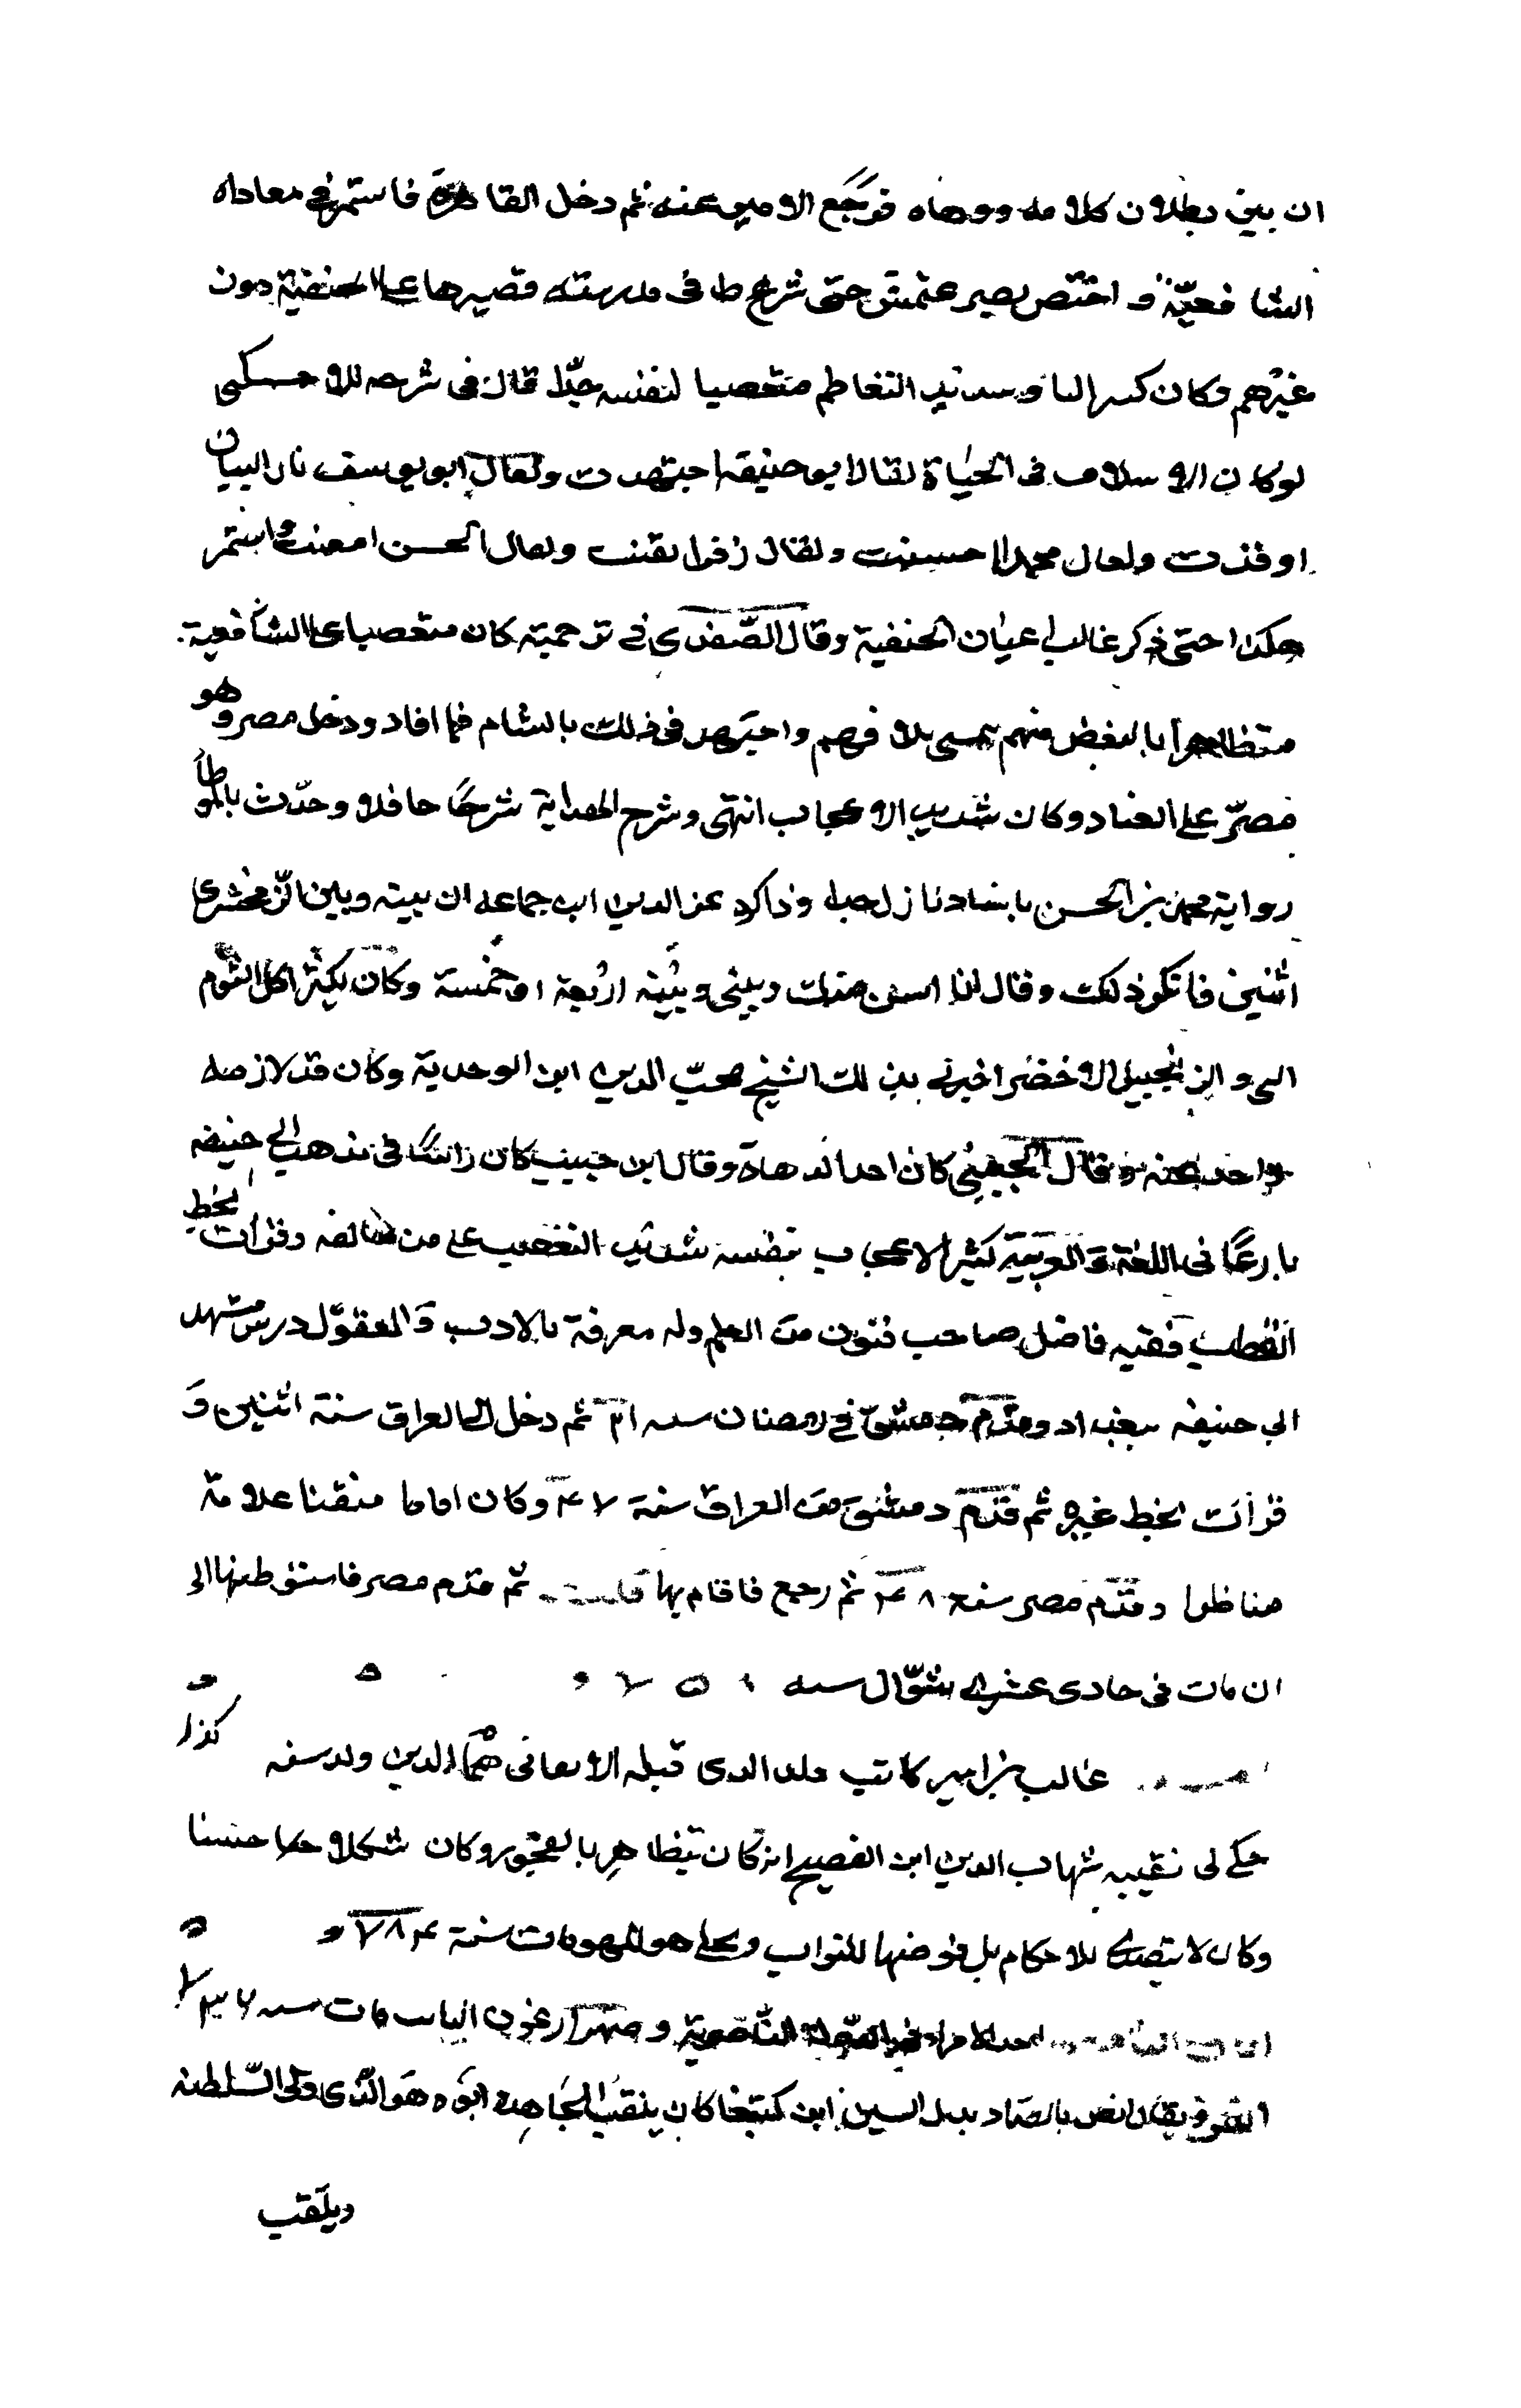 ان بين بطلان كلامه ووهاه فرجع الامير عنه ثم دخل القاهرة فاستمر في معاداه
الشافعية و اختص بصرعتمش حتى شرط في مدرسته قصرها على الحنفية دون
غيرهم وكان كبير الباو شديد التعاظم متعصبا لنفسه جدا قال في شرحه للاخسيكتى
لوكان الاسلاف في الحياة لقال ابو حنيفة اجتهدت ولقال ابو يوسف نار البيان
اوقدت ولقال محمد احسنت ولقال زفر اتقنت ولقال الحسن امعنت واستمر
هكذا حتى ذكر غالب اعيان الحنفية وقال الصفدى في ترجمته كان متعصبا على الشافعية
متظاهرا بالبغض منهم يتمنى تلافهم واجتهد في ذلك بالشام فما افاد ودخل مصر وهو
مصر على العناد وكان شديد الاعجاب انتهى وشرح الهداية شرحا حافلا وحدث بالموطأ
رواية محمد بن الحسن باسناد نازل جدا وذاكره عز الدين ابن جماعه ان بينه وبين الزمخشرى
اثنين فانكر ذلك وقال انا اسن منك وبيني وبينه اربعة او خمسة وكان يكثر اكل الثوم
النى و الزنجبيل الاخضر اخبرني بذلك الشيخ محب الدين ابن الوحدية وكان قد لازمه
واخذ عنه وقال كان احد الدهاة وقال ابن حبيب كان راسا في مذهب ابي حنيفه
بارعا في اللغة والعربية كثير الاعجاب بنفسه شديد التعصب على من خالفه وقرأت بخط
القطب فقيه فاضل صاحب فنون من العلم وله معرفة بالادب والمعقول درس بمشهد
ابي حنيفه ببغداد وقدم دمشق في رمضان سنه ٢١ ثم دخل الى العراق سنة اثنين و
قرأت بخط غيره ثم قدم دمشق من العراق سنة ٤٧ وكان اماما متقنا علامة
مناظرا وقدم مصر سنة ٤٨ ثم رجع فاقام بها ثم قدم مصر فاستوطنها الى
ان مات في حادى عشرى شوال سنه ٧٥٨
غالب بن امير كاتب ولد الذى قبله الاتقانى همام الدين ولد سنه كذا
حكى لى نقيبه شهاب الدين ابن الفصيح انه كان يتظاهر بالفجور وكان شكلا حسنا
وكان لا يتصدى للاحكام بل فوضها للنواب هو للهو مات سنة ٧٨٤
احد الامراء في الدولة الناصرية وصهر ارغون النايب مات سنه ٧٣٦
ويقال انص بالصاد بدل السين ابن كتبغا كان يلقب المجاهد ابوه هو الذى ولى السلطنه
ويلقب